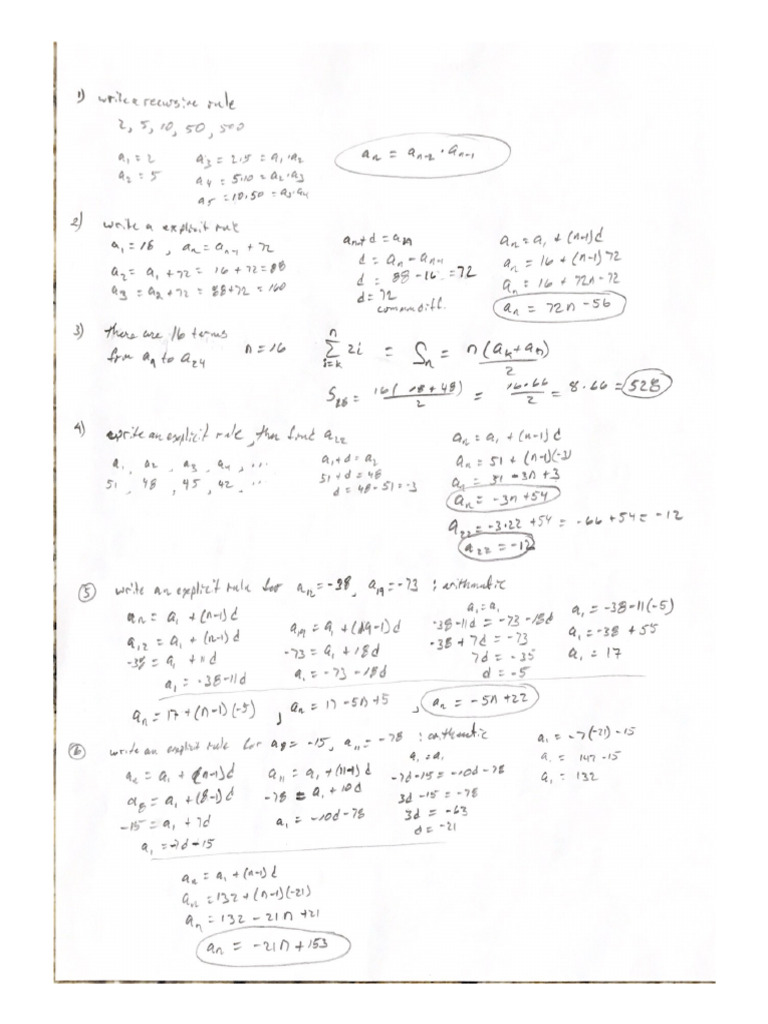 1) write a recursive rule
2, 5, 10, 50, 500
a₁ = 2
a₂ = 5
a₃ = 2·5 = a₁·a₂
a₄ = 5·10 = a₂·a₃
a₅ = 10·50 = a₃·a₄
aₙ = aₙ₋₂ · aₙ₋₁
2) write a explicit rule
a₁ = 16, aₙ = aₙ₋₁ + 72
a₂ = a₁ + 72 = 16 + 72 = 88
a₃ = a₂ + 72 = 88 + 72 = 160
d = aₙ - aₙ₋₁
d = 88 - 16 = 72
d = 72
common diff.
aₙ = a₁ + (n-1)d
aₙ = 16 + (n-1)72
aₙ = 16 + 72n - 72
aₙ = 72n - 56
3) there are 16 terms
from a₉ to a₂₄
n = 16
n
∑ 2i = Sₙ = n(aₖ + aₙ)/2
i=k
= 16(18 + 48)/2 = 16·66/2 = 8·66 = 528
4) write an explicit rule, then find a₂₂
a₁, a₂, a₃, a₄, ...
51, 48, 45, 42, ...
a₁ + d = a₂
51 + d = 48
d = 48 - 51 = -3
aₙ = a₁ + (n-1)d
aₙ = 51 + (n-1)(-3)
aₙ = 51 - 3n + 3
aₙ = -3n + 54
a₂₂ = -3·22 + 54 = -66 + 54 = -12
a₂₂ = -12
5 write an explicit rule for a₁₂ = -38, a₁₉ = -73 : arithmatic
aₙ = a₁ + (n-1)d
a₁₂ = a₁ + (n-1)d
-38 = a₁ + 11d
a₁ = -38 - 11d
a₁₉ = a₁ + (19-1)d
-73 = a₁ + 18d
a₁ = -73 - 18d
a₁ = a₁
-38 - 11d = -73 - 18d
-38 + 7d = -73
7d = -35
d = -5
a₁ = -38 - 11(-5)
a₁ = -38 + 55
a₁ = 17
aₙ = 17 + (n-1)(-5), aₙ = 17 - 5n + 5, aₙ = -5n + 22
6 write an explicit rule for a₈ = -15, a₁₁ = -78 : arithmatic
aₙ = a₁ + (n-1)d
a₈ = a₁ + (8-1)d
-15 = a₁ + 7d
a₁ = -7d - 15
a₁₁ = a₁ + (11-1)d
-78 = a₁ + 10d
a₁ = -10d - 78
a₁ = a₁
-7d - 15 = -10d - 78
3d - 15 = -78
3d = -63
d = -21
a₁ = -7(-21) - 15
a₁ = 147 - 15
a₁ = 132
aₙ = a₁ + (n-1)d
aₙ = 132 + (n-1)(-21)
aₙ = 132 - 21n + 21
aₙ = -21n + 153